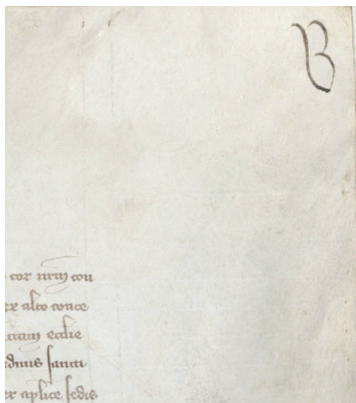 B
cor nrm con
ex alto conce
ecclie
dnus sancti
ex aplice sedis